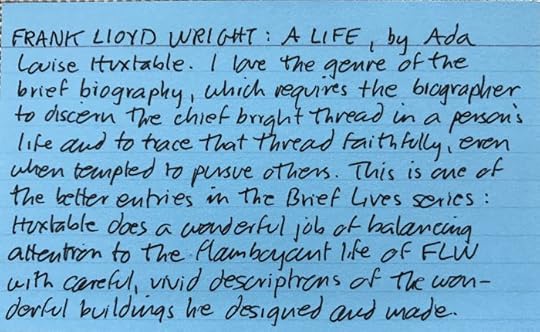 FRANK LLOYD WRIGHT: A LIFE, by Ada
Louise Huxtable. I love the genre of the
brief biography, which requires the biographer
to discern the chief bright thread in a person's
life and to trace that thread faithfully, even
when tempted to pursue others. This is one of
the better entries in the Brief Lives series:
Huxtable does a wonderful job of balancing
attention to the flamboyant life of FLW
with careful, vivid descriptions of the won-
derful buildings he designed and made.